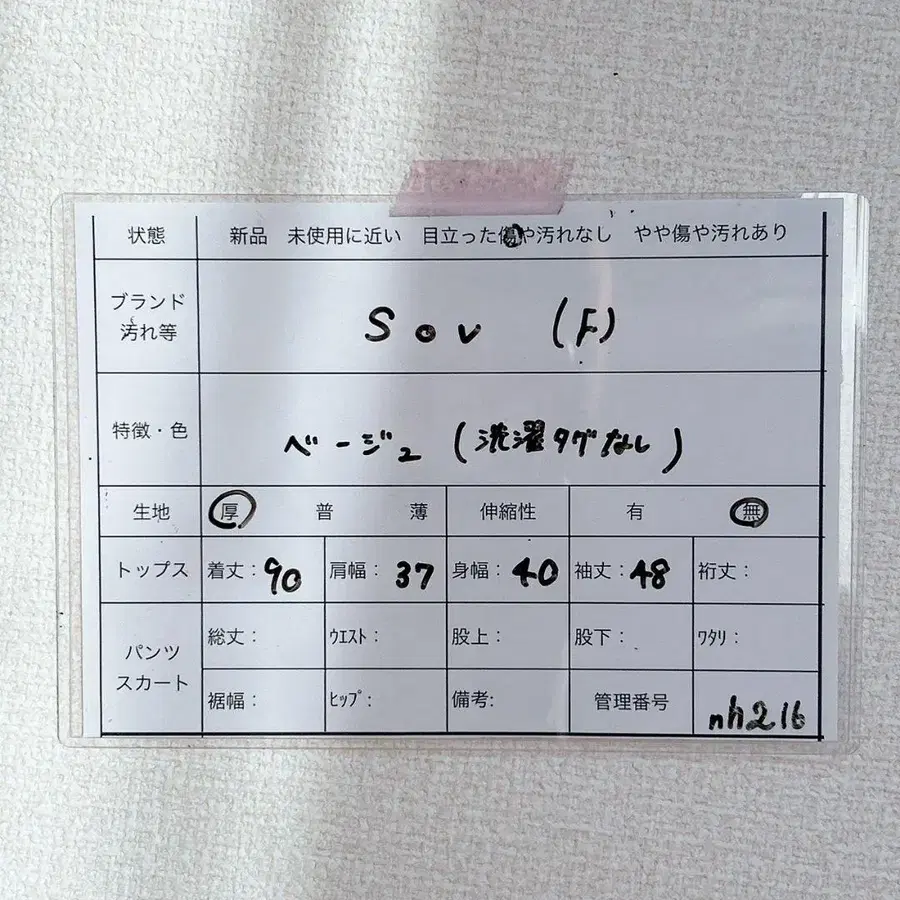 状態 新品 未使用に近い 目立った傷や汚れなし やや傷や汚れあり
ブランド
汚れ等
Sov (F)
特徴・色 ベージュ (洗濯タグなし)
生地 厚 普 薄 伸縮性 有 無
トップス 着丈：90 肩幅：37 身幅：40 袖丈：48 裄丈：
パンツ
スカート
総丈： ｳｴｽﾄ： 股上： 股下： ﾜﾀﾘ：
裾幅： ﾋｯﾌﾟ： 備考: 管理番号 nh216